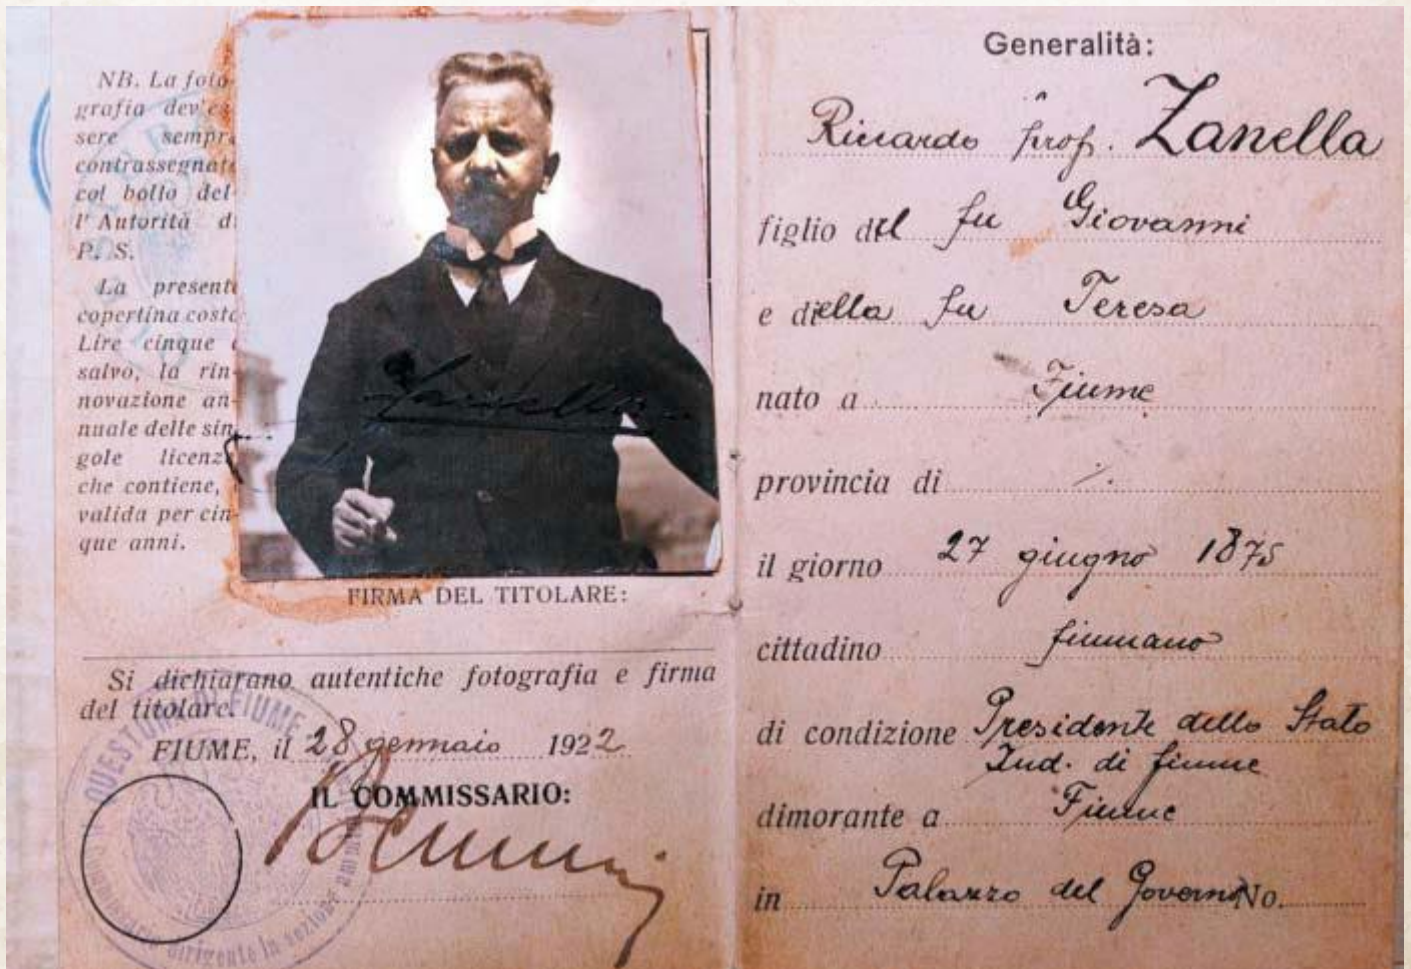 NB. La foto-
grafia dev'es-
sere sempre
contrassegnata
col bollo del-
l'Autorità di
P. S.
La presente
copertina costa
Lire cinque e
salvo, la rin-
novazione an-
nuale delle sin-
gole licenze
che contiene,
valida per cin-
que anni.
Zanella
FIRMA DEL TITOLARE:
Si dichiarano autentiche fotografia e firma
del titolare.
FIUME, il 28 gennaio 1922
IL COMMISSARIO:
QUESTURA DI FIUME
dirigente la sezione
Generalità:
Riccardo prof. Zanella
figlio del fu Giovanni
e della fu Teresa
nato a Fiume
provincia di /.
il giorno 27 giugno 1875
cittadino fiumano
di condizione Presidente dello Stato
Ind. di fiume
dimorante a Fiume
in Palazzo del Governo No.